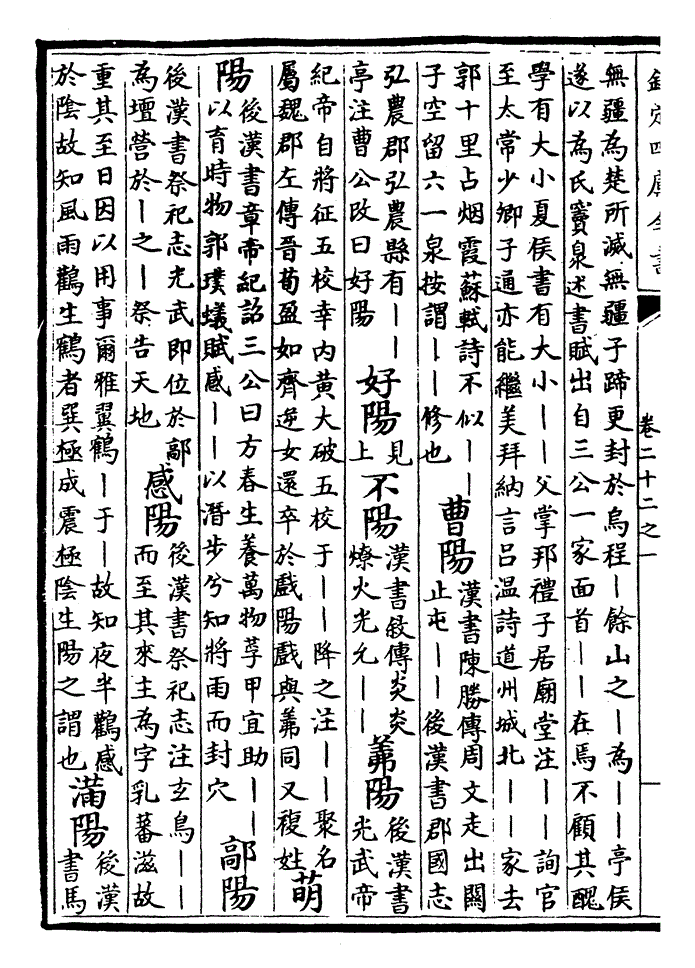 欽定四庫全書
卷二十二之一
無疆為楚所滅無疆子蹄更封於烏程丨餘山之丨為丨丨亭侯
遂以為氏竇泉述書賦出自三公一家面首丨丨在焉不顧其醜
學有大小夏侯書有大小丨丨父掌邦禮子居廟堂注丨丨詢官
至太常少卿子通亦能繼美拜納言呂溫詩道州城北丨丨家去
郭十里占烟霞蘇軾詩不似丨丨
子空留六一泉按謂丨丨修也
曹陽
漢書陳勝傳周文走出關
止屯丨丨後漢書郡國志
弘農郡弘農縣有丨丨
亭注曹公改曰好陽
好陽
見
上
不陽
漢書敘傳炎炎
燎火光允丨丨
茀陽
後漢書
光武帝
紀帝自將征五校幸內黃大破五校于丨丨降之注丨丨聚名
屬魏郡左傳晉荀盈如齊逆女還卒於戲陽戲與茀同又複姓
萌
陽
後漢書章帝紀詔三公曰方春生養萬物莩甲宜助丨丨
以育時物郭璞蟻賦感丨丨以潛步兮知將雨而封穴
鄗陽
後漢書祭祀志光武即位於鄗
為壇營於丨之丨祭告天地
感陽
後漢書祭祀志注玄鳥丨丨
而至其來主為字乳蕃滋故
重其至日因以用事爾雅翼鶴丨于丨故知夜半鸛感
於陰故知風雨鸛生鶴者巽極成震極陰生陽之謂也
滿陽
後漢
書馬